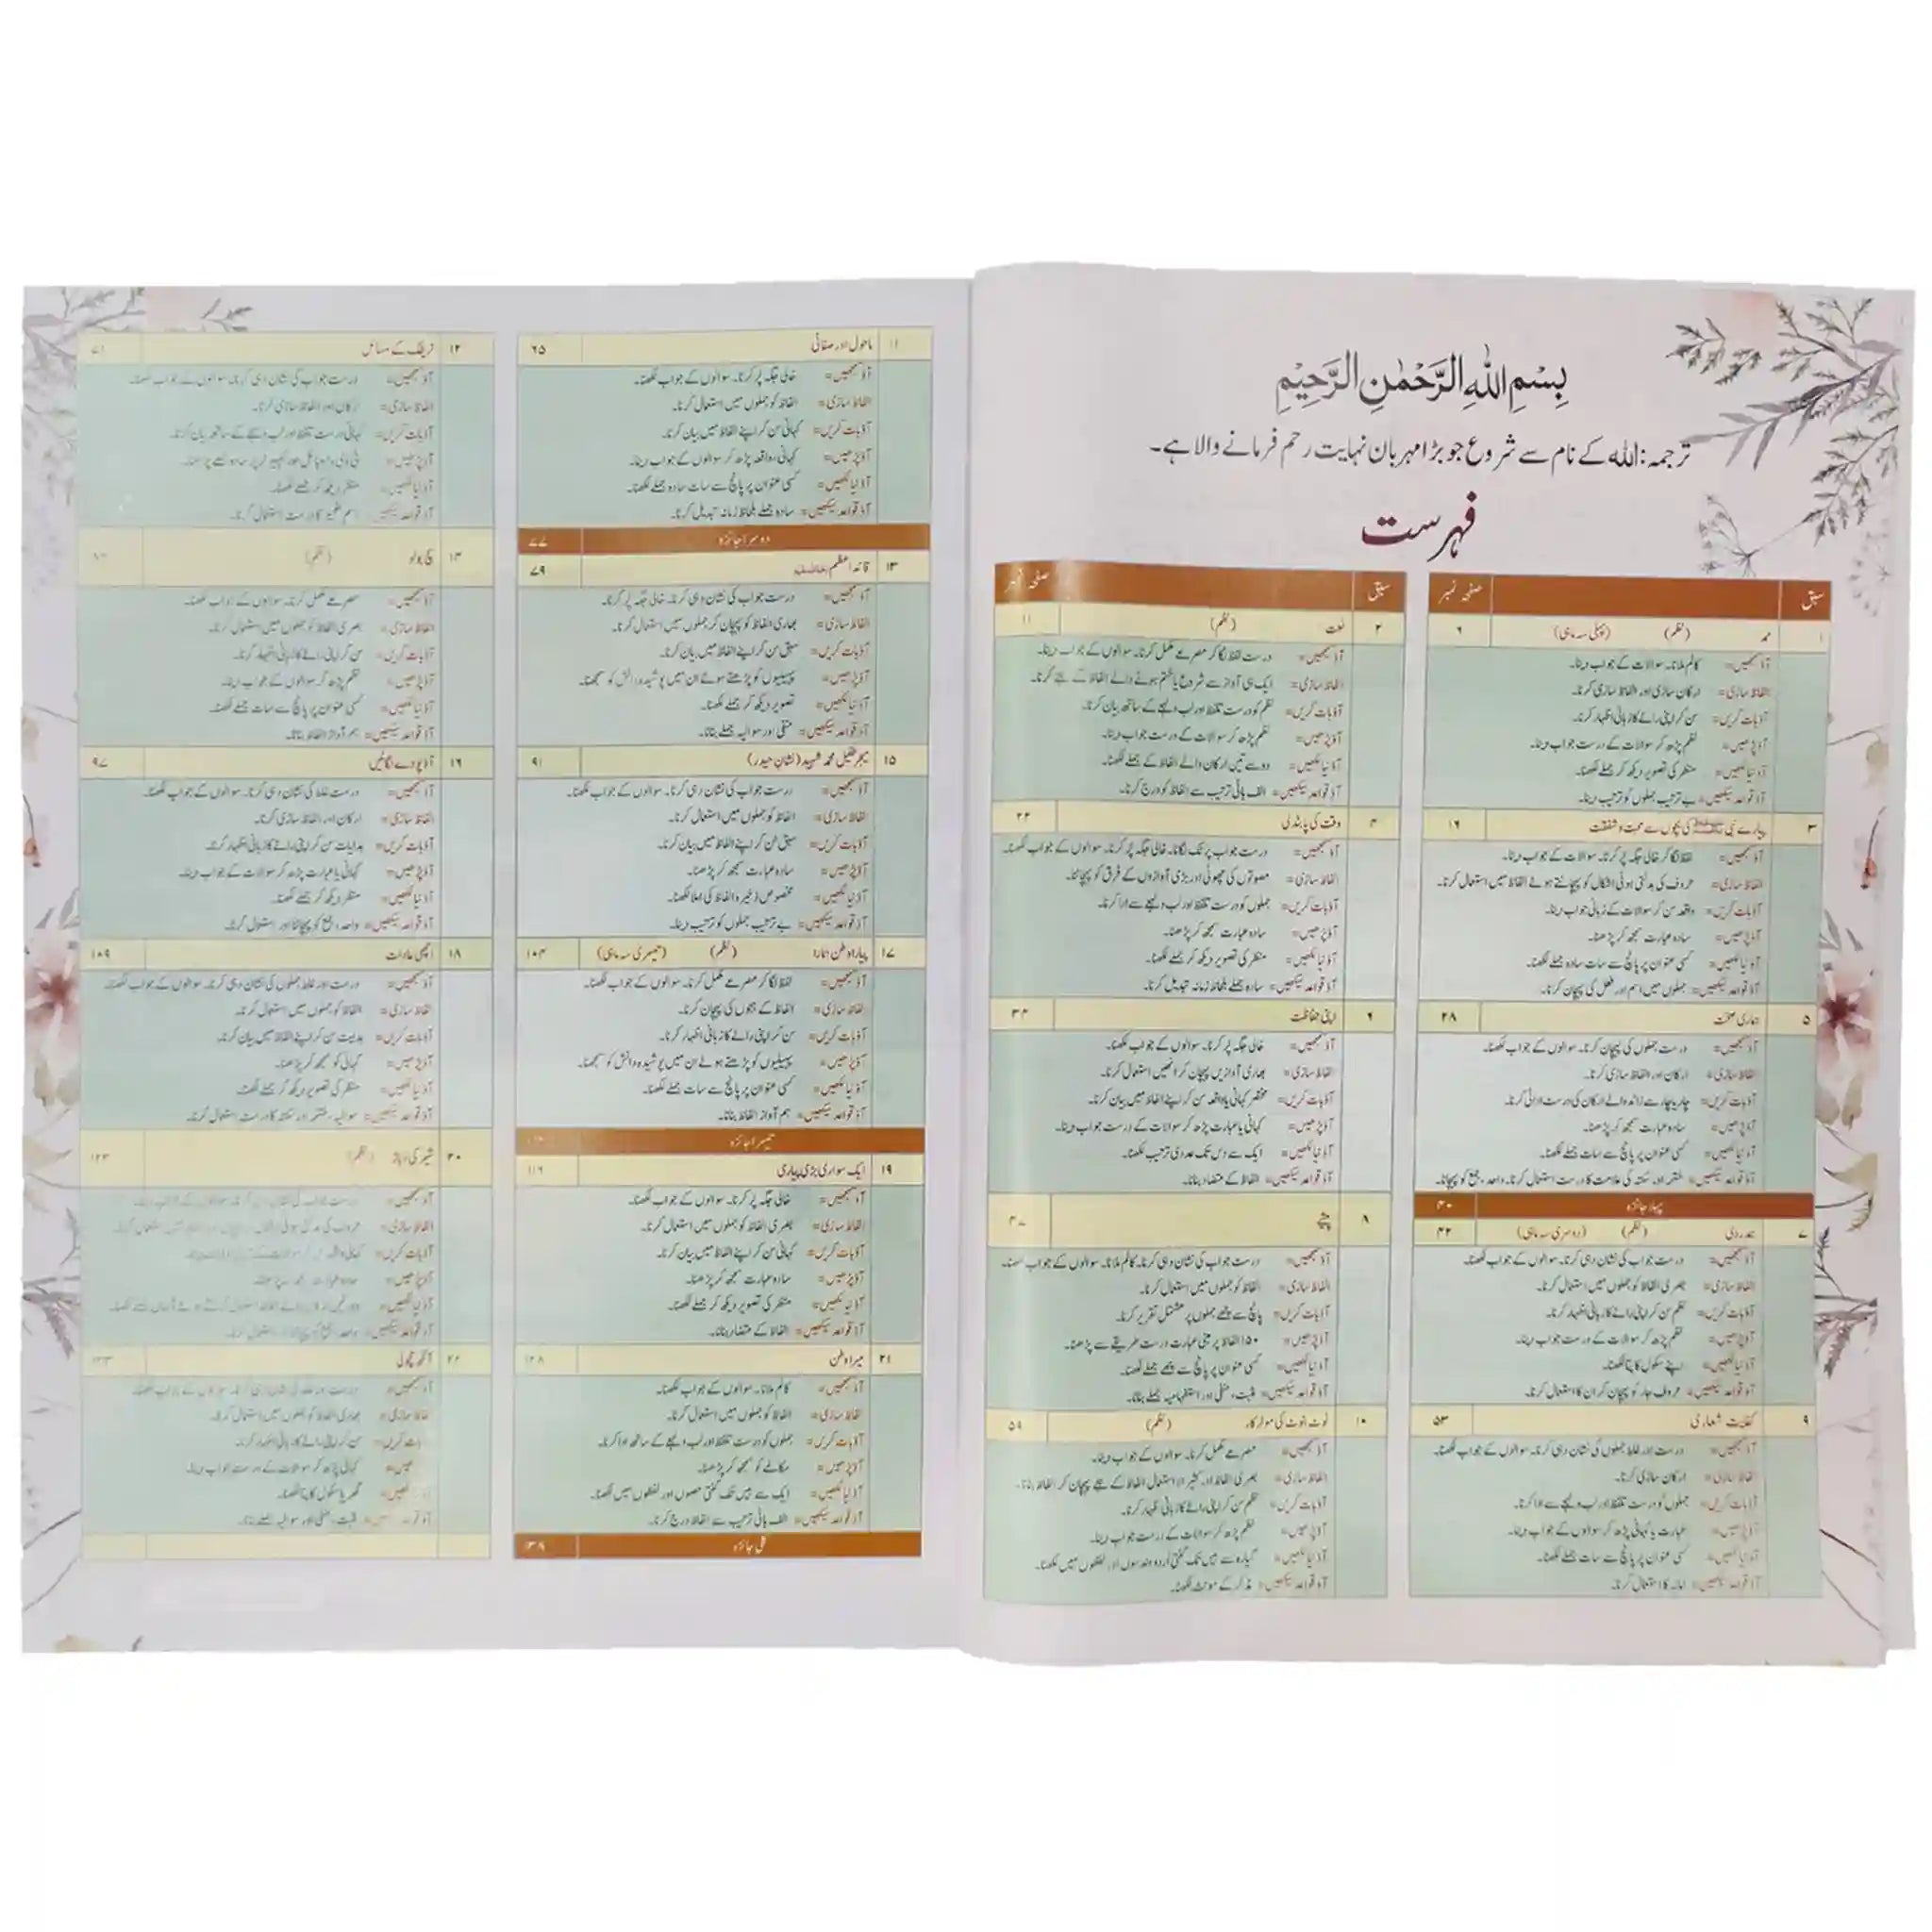 بِسْمِ اللهِ الرَّحْمٰنِ الرَّحِیْمِ
ترجمہ: اللہ کے نام سے شروع جو بڑا مہربان نہایت رحم فرمانے والا ہے۔
فہرست
سبق صفحہ نمبر
۱ حمد (نظم) (پہلی سہ ماہی) ۶
آؤ سمجھیں= کالم ملانا۔ سوالات کے جواب دینا۔
الفاظ سازی= ارکان سازی اور الفاظ سازی کرنا۔
آؤ بات کریں= سن کر اپنی رائے کا زبانی اظہار کرنا۔
آؤ پڑھیں= نظم پڑھ کر سوالات کے درست جواب دینا۔
آؤ نیا لکھیں= منظر کی تصویر دیکھ کر جملے لکھنا۔
آؤ قواعد سیکھیں= بے ترتیب جملوں کو ترتیب دینا۔
۳ پیارے نبی کی بچوں سے محبت و شفقت ۱۶
آؤ سمجھیں= لفظ لگا کر خالی جگہ پُر کرنا۔ سوالات کے جواب دینا۔
الفاظ سازی= حروف کی بدلتی ہوئی اشکال کو پہچانتے ہوئے الفاظ میں استعمال کرنا۔
آؤ بات کریں= واقعہ سن کر سوالات کے زبانی جواب دینا۔
آؤ پڑھیں= سادہ عبارت سمجھ کر پڑھنا۔
آؤ نیا لکھیں= کسی عنوان پر پانچ سے سات سادہ جملے لکھنا۔
آؤ قواعد سیکھیں= جملوں میں اسم اور فعل کی پہچان کرنا۔
۵ ہماری صحت ۲۸
آؤ سمجھیں= درست جملوں کی پہچان کرنا۔ سوالوں کے جواب لکھنا۔
الفاظ سازی= ارکان اور الفاظ سازی کرنا۔
آؤ بات کریں= چار یا چار سے زائد والے ارکان کی درست ادائی کرنا۔
آؤ پڑھیں= سادہ عبارت سمجھ کر پڑھنا۔
آؤ نیا لکھیں= کسی عنوان پر پانچ سے سات جملے لکھنا۔
آؤ قواعد سیکھیں= ختمہ اور سکتہ کی علامت کا درست استعمال کرنا۔ واحد، جمع کو پہچاننا۔
پہلا جائزہ ۴۰
۷ ہمدردی (نظم) (دوسری سہ ماہی) ۴۲
آؤ سمجھیں= درست جواب کی نشان دہی کرنا۔ سوالوں کے جواب لکھنا۔
الفاظ سازی= بصری الفاظ کو جملوں میں استعمال کرنا۔
آؤ بات کریں= نظم سن کر اپنی رائے کا زبانی اظہار کرنا۔
آؤ پڑھیں= نظم پڑھ کر سوالات کے درست جواب دینا۔
آؤ نیا لکھیں= اپنے سکول کا پتا لکھنا۔
آؤ قواعد سیکھیں= حروف جار کو پہچان کر ان کا استعمال کرنا۔
۹ کفایت شعاری ۵۳
آؤ سمجھیں= درست اور غلط جملوں کی نشان دہی کرنا۔ سوالوں کے جواب لکھنا۔
الفاظ سازی= ارکان سازی کرنا۔
آؤ بات کریں= جملوں کو درست تلفظ اور لب و لہجے سے ادا کرنا۔
آؤ پڑھیں= عبارت یا کہانی پڑھ کر سوالوں کے جواب دینا۔
آؤ نیا لکھیں= کسی عنوان پر پانچ سے سات جملے لکھنا۔
آؤ قواعد سیکھیں= کا استعمال کرنا۔
سبق صفحہ نمبر
۲ نعت (نظم) ۱۱
آؤ سمجھیں= درست لفظ لگا کر مصرعے مکمل کرنا۔ سوالوں کے جواب دینا۔
الفاظ سازی= ایک ہی آواز سے شروع یا ختم ہونے والے الفاظ کے ہجے کرنا۔
آؤ بات کریں= نظم کو درست تلفظ اور لب و لہجے کے ساتھ بیان کرنا۔
آؤ پڑھیں= نظم پڑھ کر سوالات کے درست جواب دینا۔
آؤ نیا لکھیں= دو سے تین ارکان والے الفاظ کے جملے لکھنا۔
آؤ قواعد سیکھیں= الف بائی ترتیب سے الفاظ کو درج کرنا۔
۴ وقت کی پابندی ۲۲
آؤ سمجھیں= درست جواب پر ٹک لگانا۔ خالی جگہ پُر کرنا۔ سوالوں کے جواب لکھنا۔
الفاظ سازی= مصوتوں کی چھوٹی اور بڑی آوازوں کے فرق کو پہچاننا۔
آؤ بات کریں= جملوں کو درست تلفظ اور لب و لہجے سے ادا کرنا۔
آؤ پڑھیں= سادہ عبارت سمجھ کر پڑھنا۔
آؤ نیا لکھیں= منظر کی تصویر دیکھ کر جملے لکھنا۔
آؤ قواعد سیکھیں= سادہ جملے بلحاظ زمانہ تبدیل کرنا۔
۶ اپنی حفاظت ۳۴
آؤ سمجھیں= خالی جگہ پُر کرنا۔ سوالوں کے جواب لکھنا۔
الفاظ سازی= بھاری آوازیں پہچان کر انھیں استعمال کرنا۔
آؤ بات کریں= مختصر کہانی یا واقعہ سن کر اپنے الفاظ میں بیان کرنا۔
آؤ پڑھیں= کہانی یا عبارت پڑھ کر سوالات کے درست جواب دینا۔
آؤ نیا لکھیں= ایک سے دس تک عددی ترتیب لکھنا۔
آؤ قواعد سیکھیں= الفاظ کے متضاد بنانا۔
۸ ۴۷
آؤ سمجھیں= درست جواب کی نشان دہی کرنا۔ کالم ملانا۔ سوالوں کے جواب لکھنا۔
الفاظ سازی= الفاظ کو جملوں میں استعمال کرنا۔
آؤ بات کریں= پانچ سے چھے جملوں پر مشتمل تقریر کرنا۔
آؤ پڑھیں= ۱۵۰ الفاظ پر مبنی عبارت درست طریقے سے پڑھنا۔
آؤ نیا لکھیں= کسی عنوان پر پانچ سے چھے جملے لکھنا۔
آؤ قواعد سیکھیں= مثبت، منفی اور استفہامیہ جملے بنانا۔
۱۰ ٹوٹ بٹوٹ کی موٹر کار (نظم) ۵۹
آؤ سمجھیں= مصرعے مکمل کرنا۔ سوالوں کے جواب دینا۔
الفاظ سازی= بصری الفاظ اور کثیر الاستعمال الفاظ کے ہجے پہچان کر الفاظ بنانا۔
آؤ بات کریں= نظم سن کر اپنی رائے کا زبانی اظہار کرنا۔
آؤ پڑھیں= نظم پڑھ کر سوالات کے درست جواب دینا۔
آؤ نیا لکھیں= گیارہ سے بیس تک گنتی اُردو ہندسوں اور لفظوں میں لکھنا۔
آؤ قواعد سیکھیں= مذکر کے مونث لکھنا۔
۱۱ ماحول اور صفائی ۶۵
آؤ سمجھیں= خالی جگہ پُر کرنا۔ سوالوں کے جواب لکھنا۔
الفاظ سازی= الفاظ کو جملوں میں استعمال کرنا۔
آؤ بات کریں= کہانی سن کر اپنے الفاظ میں بیان کرنا۔
آؤ پڑھیں= کہانی، واقعہ پڑھ کر سوالوں کے جواب دینا۔
آؤ نیا لکھیں= کسی عنوان پر پانچ سے سات سادہ جملے لکھنا۔
آؤ قواعد سیکھیں= سادہ جملے بلحاظ زمانہ تبدیل کرنا۔
دوسرا جائزہ ۷۷
۱۳ قائد اعظم ۷۹
آؤ سمجھیں= درست جواب کی نشان دہی کرنا۔ خالی جگہ پُر کرنا۔
الفاظ سازی= بھاری الفاظ کو پہچان کر جملوں میں استعمال کرنا۔
آؤ بات کریں= سبق سن کر اپنے الفاظ میں بیان کرنا۔
آؤ پڑھیں= پہیلیوں کو پڑھتے ہوئے ان میں پوشیدہ دانش کو سمجھنا۔
آؤ نیا لکھیں= تصویر دیکھ کر جملے لکھنا۔
آؤ قواعد سیکھیں= منفی اور سوالیہ جملے بنانا۔
۱۵ میجر طفیل محمد شہید (نشانِ حیدر) ۹۱
آؤ سمجھیں= درست جواب کی نشان دہی کرنا۔ سوالوں کے جواب لکھنا۔
الفاظ سازی= الفاظ کو جملوں میں استعمال کرنا۔
آؤ بات کریں= سبق سن کر اپنے الفاظ میں بیان کرنا۔
آؤ پڑھیں= سادہ عبارت سمجھ کر پڑھنا۔
آؤ نیا لکھیں= مخصوص ذخیرہ الفاظ کی املا لکھنا۔
آؤ قواعد سیکھیں= بے ترتیب جملوں کو ترتیب دینا۔
۱۷ پیارا وطن ہمارا (نظم) (تیسری سہ ماہی) ۱۰۴
آؤ سمجھیں= لفظ لگا کر مصرعے مکمل کرنا۔ سوالوں کے جواب لکھنا۔
الفاظ سازی= الفاظ کے ہجوں کی پہچان کرنا۔
آؤ بات کریں= سن کر اپنی رائے کا زبانی اظہار کرنا۔
آؤ پڑھیں= پہیلیوں کو پڑھتے ہوئے ان میں پوشیدہ دانش کو سمجھنا۔
آؤ نیا لکھیں= کسی عنوان پر پانچ سے سات جملے لکھنا۔
آؤ قواعد سیکھیں= ہم آواز الفاظ بنانا۔
تیسرا جائزہ
۱۹ ایک سواری بڑی پیاری ۱۱۶
آؤ سمجھیں= خالی جگہ پُر کرنا۔ سوالوں کے جواب لکھنا۔
الفاظ سازی= بصری الفاظ کو جملوں میں استعمال کرنا۔
آؤ بات کریں= کہانی سن کر اپنے الفاظ میں بیان کرنا۔
آؤ پڑھیں= سادہ عبارت سمجھ کر پڑھنا۔
آؤ نیا لکھیں= منظر کی تصویر دیکھ کر جملے لکھنا۔
آؤ قواعد سیکھیں= الفاظ کے متضاد بنانا۔
۲۱ میرا وطن ۱۲۸
آؤ سمجھیں= کالم ملانا۔ سوالوں کے جواب لکھنا۔
الفاظ سازی= الفاظ کو جملوں میں استعمال کرنا۔
آؤ بات کریں= جملوں کو درست تلفظ اور لب و لہجے کے ساتھ ادا کرنا۔
آؤ پڑھیں= مکالمے کو سمجھ کر پڑھنا۔
آؤ نیا لکھیں= ایک سے بیس تک گنتی ہندسوں اور لفظوں میں لکھنا۔
آؤ قواعد سیکھیں= الف بائی ترتیب سے الفاظ درج کرنا۔
کلی جائزہ ۱۳۹
۱۲ ٹریفک کے مسائل ۷۱
آؤ سمجھیں= درست جواب کی نشان دہی کرنا۔ سوالوں کے جواب لکھنا۔
الفاظ سازی= ارکان اور الفاظ سازی کرنا۔
آؤ بات کریں= کہانی درست تلفظ اور لب و لہجے کے ساتھ بیان کرنا۔
آؤ پڑھیں= ٹی وی، موبائل اور کمپیوٹر پر سادہ جملے پڑھنا۔
آؤ نیا لکھیں= منظر دیکھ کر جملے لکھنا۔
آؤ قواعد سیکھیں= اسم ضمیر کا درست استعمال کرنا۔
۱۴ سچ بولو (نظم)
آؤ سمجھیں= مصرعے مکمل کرنا۔ سوالوں کے جواب لکھنا۔
الفاظ سازی= بصری الفاظ کو جملوں میں استعمال کرنا۔
آؤ بات کریں= سن کر اپنی رائے کا زبانی اظہار کرنا۔
آؤ پڑھیں= نظم پڑھ کر سوالوں کے جواب دینا۔
آؤ نیا لکھیں= کسی عنوان پر پانچ سے سات جملے لکھنا۔
آؤ قواعد سیکھیں= ہم آواز الفاظ بنانا۔
۱۶ آؤ پودے لگائیں ۹۷
آؤ سمجھیں= درست غلط کی نشان دہی کرنا۔ سوالوں کے جواب لکھنا۔
الفاظ سازی= ارکان اور الفاظ سازی کرنا۔
آؤ بات کریں= ہدایات سن کر اپنی رائے کا زبانی اظہار کرنا۔
آؤ پڑھیں= کہانی یا عبارت پڑھ کر سوالات کے جواب دینا۔
آؤ نیا لکھیں= منظر دیکھ کر جملے لکھنا۔
آؤ قواعد سیکھیں= واحد، جمع کو پہچاننا اور استعمال کرنا۔
۱۸ اچھی عادات ۱۰۹
آؤ سمجھیں= درست اور غلط جملوں کی نشان دہی کرنا۔ سوالوں کے جواب لکھنا۔
الفاظ سازی= الفاظ کو جملوں میں استعمال کرنا۔
آؤ بات کریں= ہدایت سن کر اپنے الفاظ میں بیان کرنا۔
آؤ پڑھیں= کہانی کو سمجھ کر پڑھنا۔
آؤ نیا لکھیں= منظر کی تصویر دیکھ کر جملے لکھنا۔
آؤ قواعد سیکھیں= سوالیہ، ختمہ اور سکتہ کا درست استعمال کرنا۔
۲۰ شیر کی (نظم) ۱۲۲
آؤ سمجھیں=
الفاظ سازی=
آؤ بات کریں=
آؤ پڑھیں= سادہ عبارت سمجھ کر پڑھنا۔
آؤ نیا لکھیں=
آؤ قواعد سیکھیں= واحد، جمع کو پہچاننا اور استعمال کرنا۔
۲۲ آنکھ مچولی ۱۳۳
آؤ سمجھیں= درست اور غلط کی نشان دہی کرنا۔ سوالوں کے جواب لکھنا۔
الفاظ سازی= بھاری الفاظ کو جملوں میں استعمال کرنا۔
آؤ بات کریں= سن کر اپنی رائے کا زبانی اظہار کرنا۔
کہانی پڑھ کر سوالات کے درست جواب دینا۔
گھر یا سکول کا پتا لکھنا۔
مثبت، منفی اور سوالیہ جملے بنانا۔